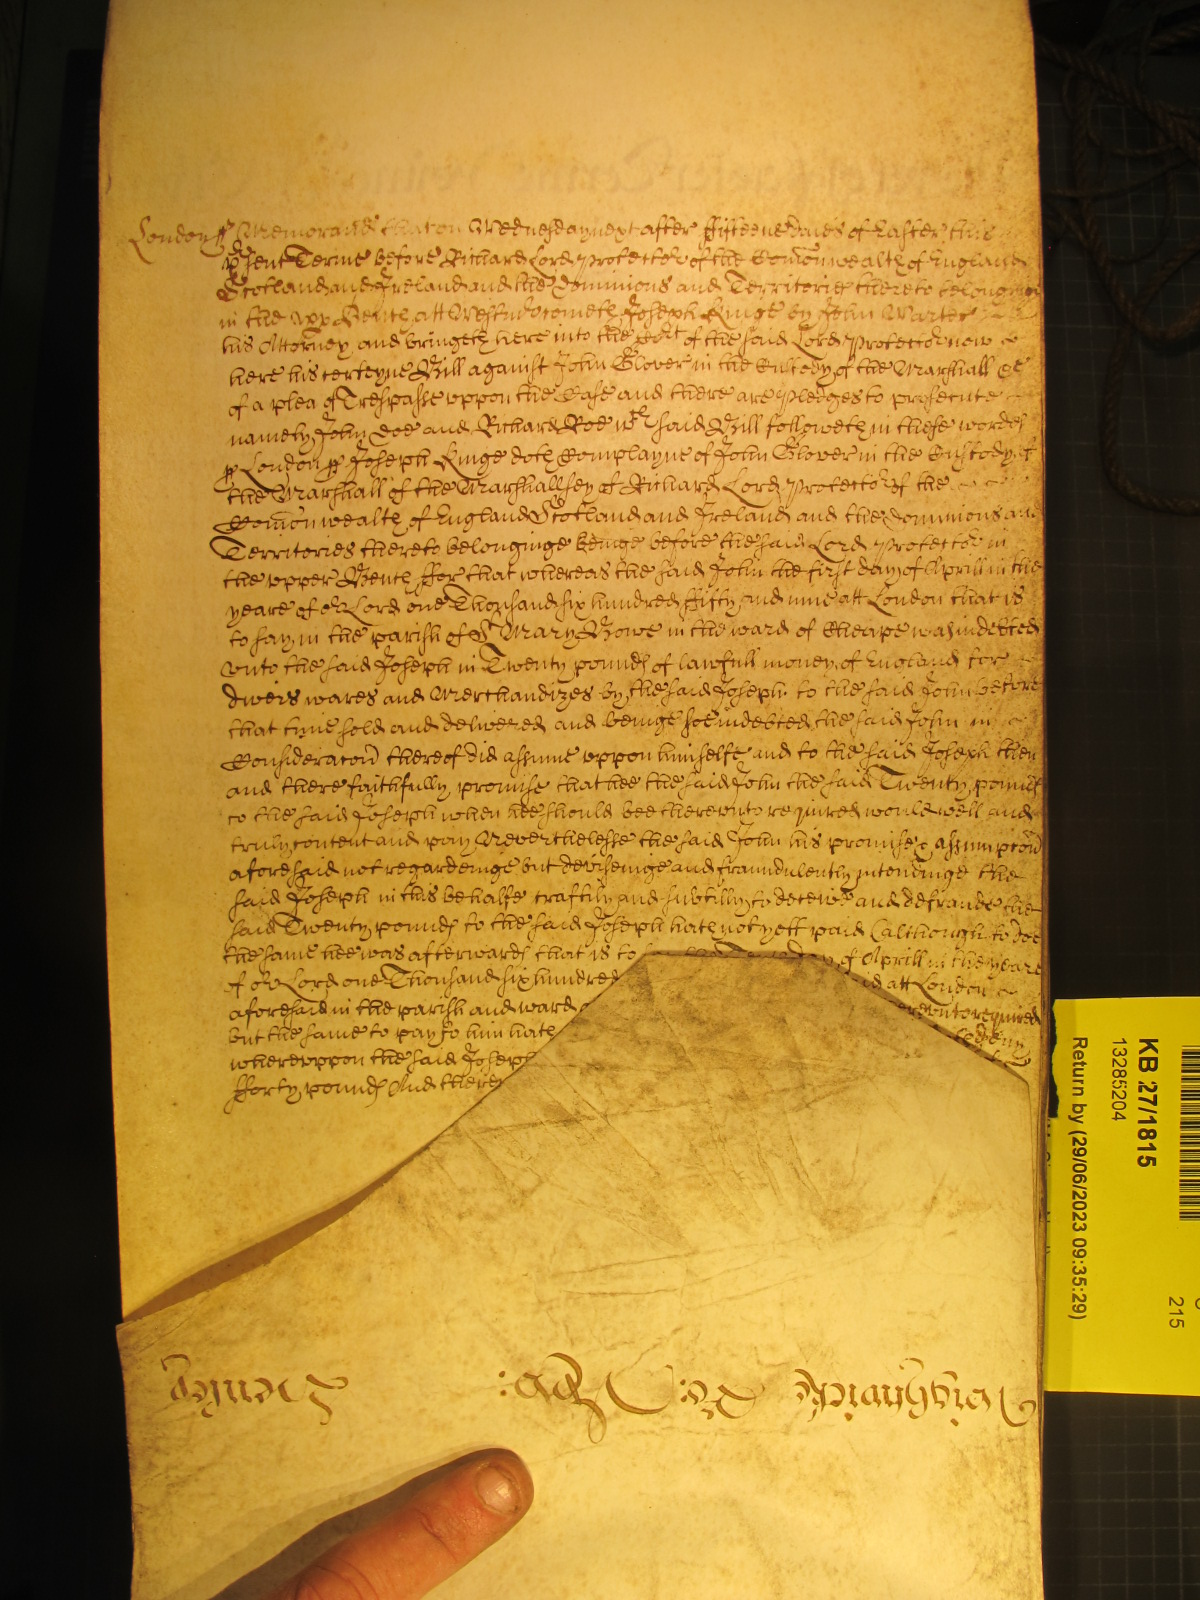 London ss Memorand that on Wednesday next after ffifteene daies of Easter this
p̱sent Terme before Richard Lord Protector of the Com̄onwealth of England
Scotland and Ireland and the Dominions and Territories thereto belonging
in the upp Bench att Westmr cometh Joseph Kinge by John
his Attorney and bringeth here into the Cort of the said Lord Protector now
here his certeyne Bill against John Glover in the Custody of the Marshall &c
of a plea of Trespasse uppon the Case and there are Pledges to prosecute
namely John Doe and Richard Roe wch said Bill followeth in these wordes
ss London ss Joseph Kinge doth Complayne of John Glover in the Custody of
the Marshall of the Marshallsey of Richard Lord Protector of the
Com̄onwealth of England Scotland and Ireland and the Dominions and
Territories thereto belonginge beinge before the said Lord Protector in
the upper Bench ffor that whereas the said John the first day of Aprill in the
yeare of or Lord one Thousand six hundred ffifty and nine att London that is
to say in the parish of St Mary Bowe in the ward of Cheape was indebted
unto the said Joseph in Twenty pounds of lawfull money of England for
divers wares and Merchandizes by the said Joseph to the said John before
that tyme sold and delivered and beinge soe indebted the said John in
Consideracon thereof did assume uppon himselfe and to the said Joseph then
and there faithfully promise that hee the said John the said Twenty pounds
to the said Joseph when hee should bee thereunto required would well and
truly content and pay Neverthelesse the said John his promise & assumpcon
aforesaid not regardeinge but deviseinge and fraudulently intendinge the
said Joseph in this behalfe craftily and subtilly to deceive and defraude the
said Twenty pounds to the said Joseph hath not yett paid (although to doe
the same hee was afterwards that is to day of Aprill in the yeare
of or Lord one Thousand six hundred said att London
aforesaid in the parish and ward thereunto required
but the same to pay to him hath deny
whereuppon the said Joseph
fforty pounds And there
KB 27/1815
13285204
Return by (29/06/2023 09:35:29)
215